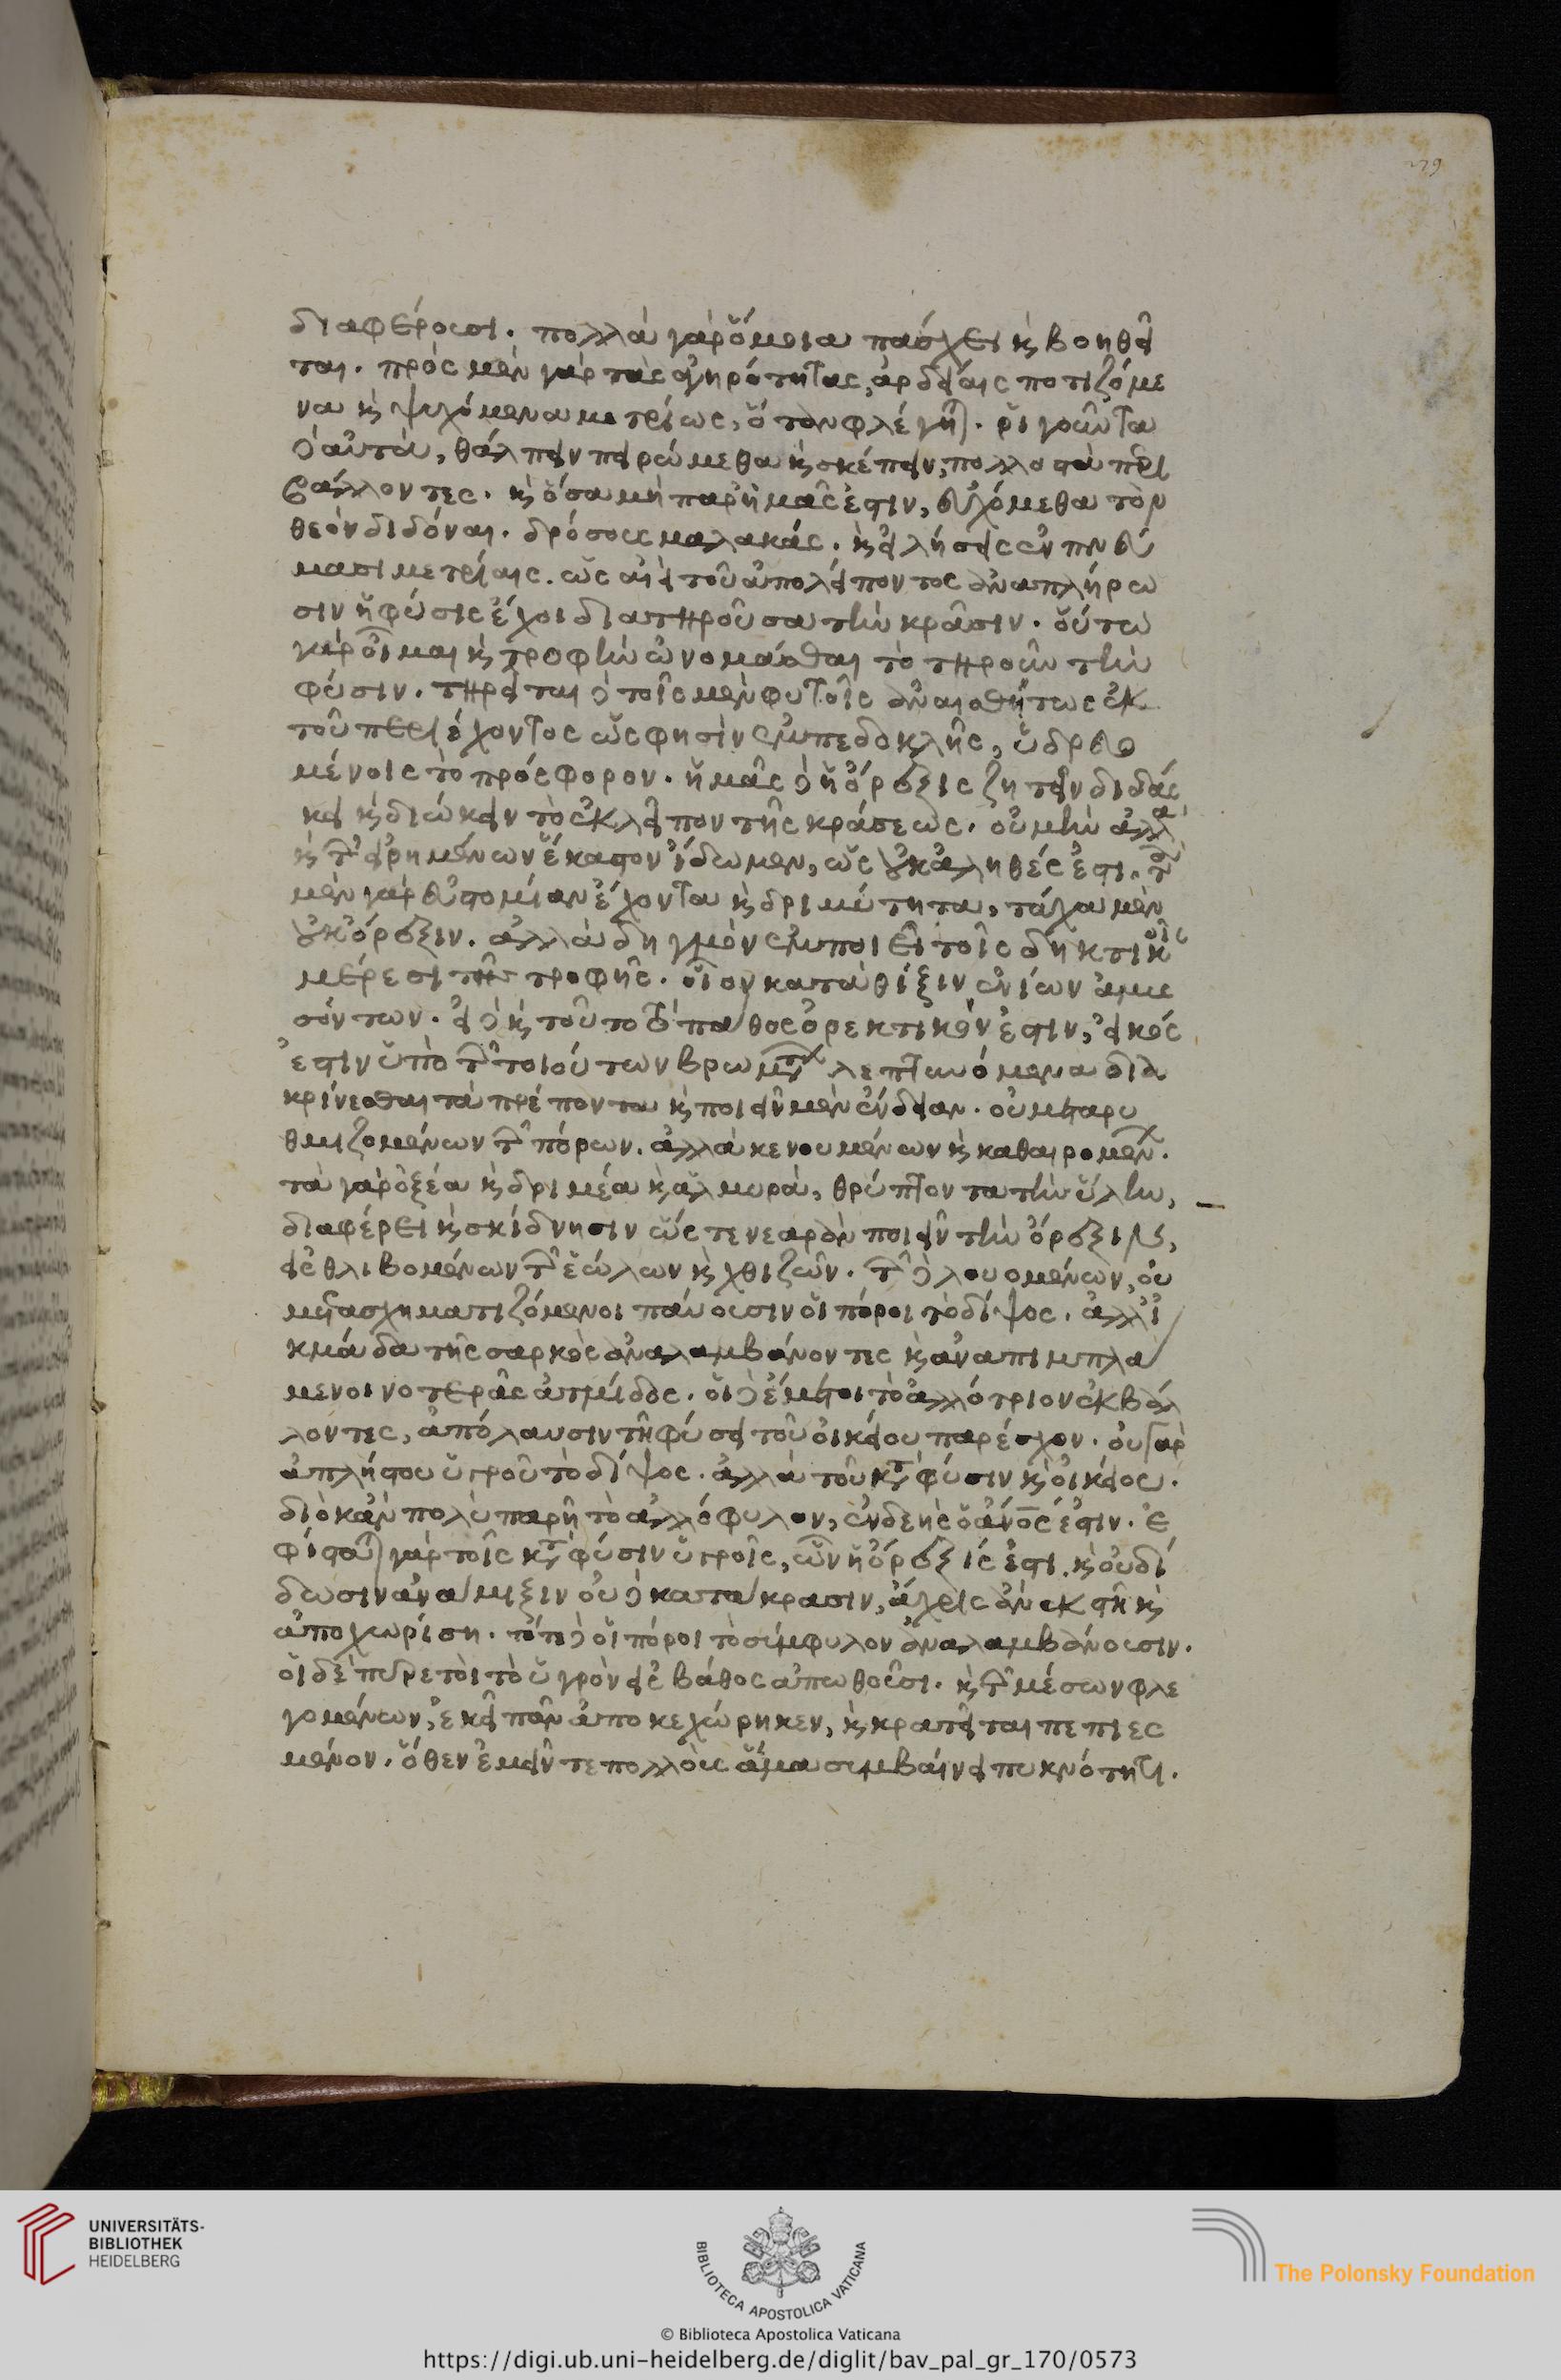 279
διαφέρουσι. πολλὰ γὰρ ὅμοια πάσχει ϗ βοηθεῖ
ται. πρὸς μὲν γὰρ τὰς ξηρότητας, ἀρδείαις ποτιζόμε
να ϗ ψυχόμενα μετρίως, ὅταν φλέγηται. ῥιγοῦντα
δὲ αὐτὰ, θάλπειν πειρώμεθα ϗ σκέπειν, πολλὰ ἄττα περι
βάλλοντες. ϗ ὅσα μὴ παρ' ἡμᾶς ἐστιν, εὐχόμεθα τὸν
θεὸν διδόναι. δρόσους μαλακάς. ϗ εἱλήσεις ἐν πνεύ
μασι μετρίαις. ὡς αἰεὶ τοῦ ἀπολείποντος ἀναπλήρω
σιν ἡ φύσις ἔχοι διατηροῦσα τὴν κρᾶσιν. οὕτω
γὰρ οἶμαι ϗ τροφὴν ὠνομάσθαι τὸ τηροῦν τὴν
φύσιν. τηρεῖται δὲ τοῖς μὲν φυτοῖς ἀναισθήτως ἐκ
τοῦ περιέχοντος ὥς φησὶν ἐμπεδοκλῆς, ὑδρευο
μένοις τὸ πρόσφορον. ἡμᾶς δὲ ἡ ὄρεξις ζητεῖν διδάσ
κει ϗ διώκειν τὸ ἐκλεῖπον τῆς κράσεως. οὐ μὴν ἀλλὰ
ϗ τῶν εἰρημένων ἕκαστον ἴδωμεν, ὡς οὐκ ἀληθές ἐστι. τὰ
μὲν γὰρ εὐστομίαν ἔχοντα ϗ δριμύτητα, τάχα μὲν
οὐκ ὄρεξιν. ἀλλὰ δηγμὸν ἐμποιεῖ τοῖς δηκτικοῖς
μέρεσι τῆς τροφῆς. οἷον κατὰ θίξιν ἐνίων ἀμυσ
σόντων. εἰ δὲ ϗ τοῦτο τὸ πάθος ὀρεκτικόν ἐστιν, εἰκός
ἐστιν ὑπὸ τῶν τοιούτων βρωμάτων λεπτυνόμενα δια
κρίνεσθαι τὰ πρέποντα ϗ ποιεῖν μὲν ἔνδειαν. οὐ μεταρυ
θμιζομένων τῶν πόρων. ἀλλὰ κενουμένων ϗ καθαιρομένων.
τὰ γὰρ ὀξέα ϗ δριμέα ϗ ἁλμυρὰ, θρύπτοντα τὴν ὕλην,
διαφέρει ϗ σκίδνησιν ὥστε νεαρὰν ποιεῖν τὴν ὄρεξιν,
ἐκθλιβομένων τῶν ἑώλων ϗ χθιζῶν. τῶν δὲ λουομένων, οὐ
μετασχηματιζόμενοι παύουσιν οἱ πόροι τὸ δίψος. ἀλλ' ἰ
κμάδα τῆς σαρκὸς ἀναλαμβάνοντες ϗ ἀναπιμπλά
μενοι νοτερᾶς ἀτμίδος. οἱ δὲ ἔμετοι τὸ ἀλλότριον ἐκβάλ
λοντες, ἀπόλαυσιν τῇ φύσει τοῦ οἰκείου παρέσχον. οὐ γὰρ
ἁπλήστου ὑγροῦ τὸ δίψος. ἀλλὰ τοῦ κατὰ φύσιν ϗ οἰκείου.
διὸ κἂν πολὺ παρῇ τὸ ἀλλόφυλον, ἐνδεὴς ὁ ἄνος ἐστιν. ἐ
φίσταται γὰρ τοῖς κατὰ φύσιν ὑγροῖς, ὧν ἡ ὄρεξίς ἐστι. ϗ οὐ δί
δωσιν ἀνάμιξιν οὐδὲ κατάκρασιν, ἄχρις ἂν ἐκστῇ ϗ
ἀποχωρίσῃ. τότε δὲ οἱ πόροι τὸ σύμφυλον ἀναλαμβάνουσιν.
οἱ δὲ πυρετοὶ τὸ ὑγρὸν εἰς βάθος ἀπωθοῦσι. ϗ τῶν μέσων φλε
γομένων, ἐκεῖ πᾶν ἀποκεχώρηκεν, ϗ κρατεῖται πεπιεσ
μένον. ὅθεν ἐμεῖν τε πολλοὺς ἅμα συμβαίνει πυκνότητι.
UNIVERSITÄTS-
BIBLIOTHEK
HEIDELBERG
BIBLIOTECA APOSTOLICA VATICANA
The Polonsky Foundation
© Biblioteca Apostolica Vaticana
https://digi.ub.uni-heidelberg.de/diglit/bav_pal_gr_170/0573